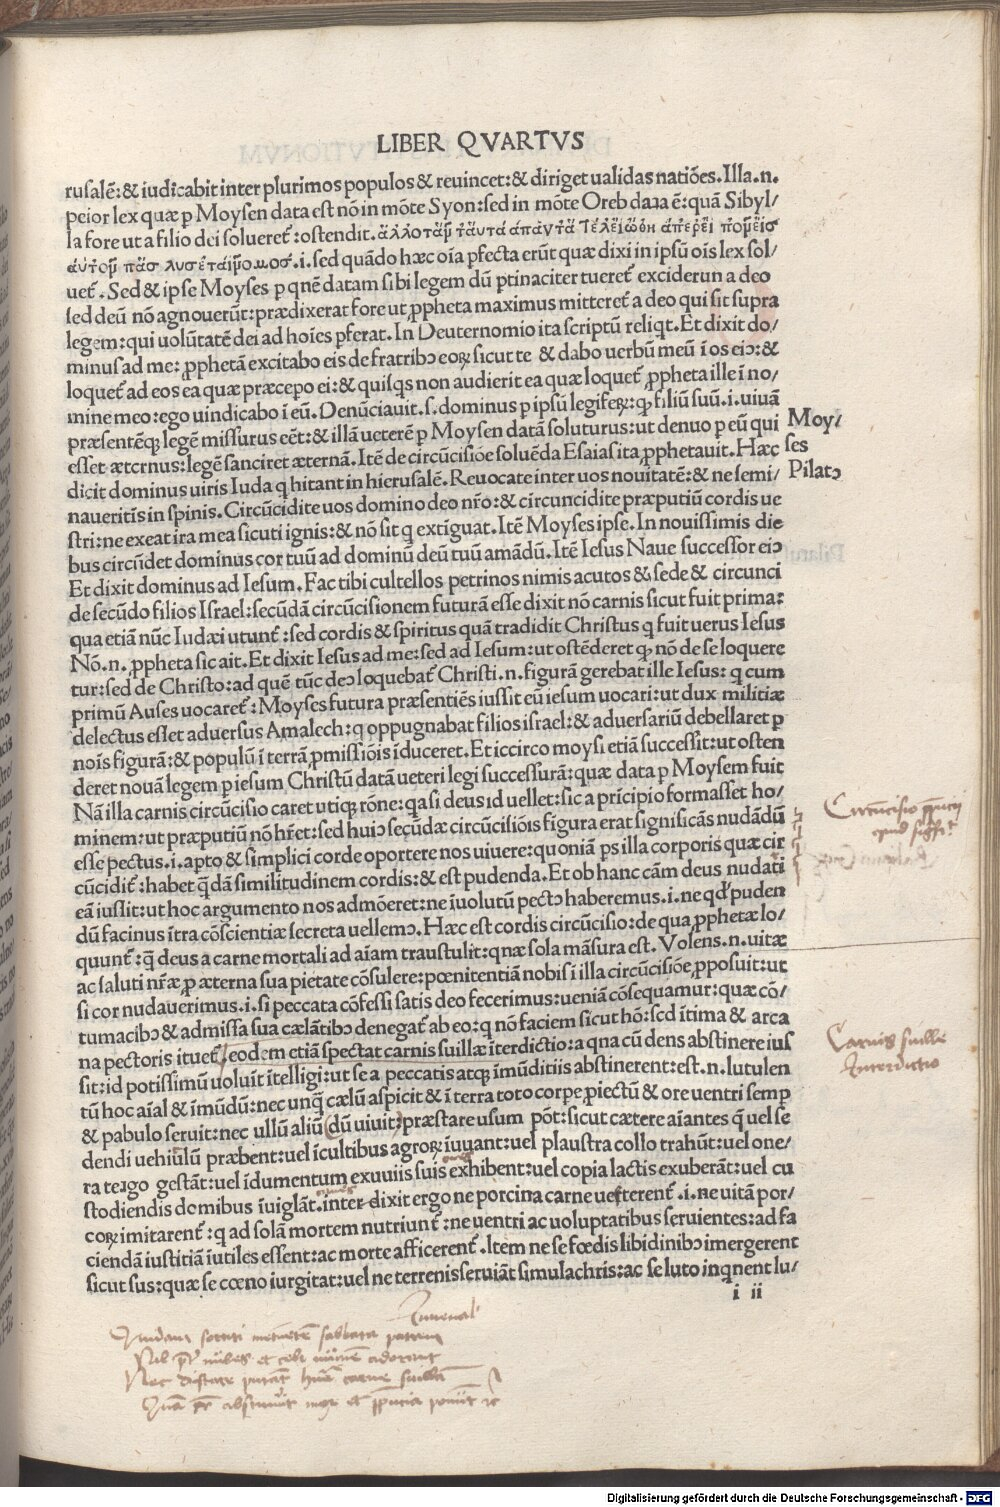 LIBER QVARTVS
rusalē:& iudicabit inter plurimos populos & reuincet:& diriget ualidas natiōes. Illa .n.
peior lex quæ p Moysen data est nō in mōte Syon: sed in mōte Oreb data ē: quā Sibyl/
la fore ut a filio dei solueret᷑: ostendit.
.i. sed quādo hæc oīa pfecta erūt quæ dixi in ipsū oīs lex sol/
uet᷑. Sed & ipse Moyses p qnē datam sibi legem dū ptinaciter tueret᷑ exciderun a deo
sed deū nō agnouerūt: prædixerat fore ut ꝓpheta maximus mitteret᷑ a deo qui sit supra
legem: qui uolūtatē dei ad hoīes pferat. In Deuternomio ita scriptū reliqt. Et dixit do/
minus ad me: ꝓphetā excitabo eis de fratribꝰ eoꝝ sicut te & dabo uerbū meū ī os eiꝰ:&
loquet᷑ ad eos ea quæ præcepo ei:& quisqs non audierit ea quæ loquet᷑ ꝓpheta ille ī no/
mine meo: ego uindicabo ī eū. Denūciauit .s. dominus p ipsū legiferꝝ: ꝙ filiū suū .i. uiuā
præsentēqȝ legē missurus eēt:& illā ueterē p Moysen datā soluturus: ut denuo p eū qui
esset æternus: legē sanciret æternā. Itē de circūcisiōe soluēda Esaias ita ꝓphetauit. Hæc
dicit dominus uiris Iuda q hitant in hierusalē. Reuocate inter uos nouitatē:& ne semi/
naueritis in spinis. Circūcidite uos domino deo nr̄o:& circuncidite præputiū cordis ue
stri: ne exeat ira mea sicuti ignis:& nō sit q extiguat. Itē Moyses ipse. In nouissimis die
bus circūdet dominus cor tuū ad dominū deū tuū amādū. Itē Iesus Naue successor eiꝰ
Et dixit dominus ad Iesum. Fac tibi cultellos petrinos nimis acutos & sede & circunci
de secūdo filios Israel: secūdā circūcisionem futurā esse dixit nō carnis sicut fuit prima:
qua etiā nūc Iudæi utunt᷑: sed cordis & spiritus quā tradidit Christus q fuit uerus Iesus
Nō .n. ꝓpheta sic ait. Et dixit Iesus ad me: sed ad Iesum: ut ostēderet ꝙ nō de se loquere
tur: sed de Christo: ad quē tūc deꝰ loquebat᷑ Christi .n. figurā gerebat ille Iesus: q cum
primū Auses uocaret᷑: Moyses futura præsentiēs iussit eū iesum uocari: ut dux militiæ
delectus esset aduersus Amalech: q oppugnabat filios israel:& aduersariū debellaret p
nois figurā:& populū ī terrā ꝓmissiōis īduceret. Et iccirco moysi etiā successit: ut osten
deret nouā legem p iesum Christū datā ueteri legi successurā: quæ data p Moysem fuit
Nā illa carnis circūcisio caret utiqȝ rōne: qa si deus id uellet: sic a prīcipio formasset ho/
minem: ut præputiū nō hr̄et: sed huiꝰ secūdæ circūcisiōis figura erat significās nudādū
esse pectus .i. apto & simplici corde oportere nos uiuere: quoniā ps illa corporis quæ cir
cūcidit᷑: habet q̄dā similitudinem cordis:& est pudenda. Et ob hanc cām deus nudati
eā iussit: ut hoc argumento nos admōeret: ne īuolutū pectꝰ haberemus .i. ne qd̄ puden
dū facinus ītra cōscientiæ secreta uellemꝰ. Hæc est cordis circūcisio: de qua ꝓphetæ lo/
quunt᷑: q̄ deus a carne mortali ad aīam traustulit: qnæ sola māsura est. Volens .n. uitæ
ac saluti nr̄æ p æterna sua pietate cōsulere: pœnitentiā nobis ī illa circūcisiōe ꝓposuit: ut
si cor nudauerimus .i. si peccata cōfessi satis deo fecerimus: ueniā cōsequamur: quæ cō/
tumacibꝰ & admissa sua cælātibꝰ denegat᷑ ab eo: q nō faciem sicut hō: sed ītima & arca
na pectoris ītuet᷑ eodem etiā spectat carnis suillæ īterdictio: a qna cū dens abstinere ius
sit: id potissimū uoluīt ītelligi: ut se a peccatis atqȝ īmūditiis abstinerent: est .n. lutulen
tū hoc aīal & īmūdū: nec unq̄ cælū aspicit & ī terra toto corpe ꝓiectū & ore uentri semp
& pabulo seruit: nec ullū aliū (dū uiuit) præstare usum pōt: sicut cætere aīantes q̄ uel se
dendi uehiulū præbent: uel īcultibus agroꝝ iuuant: uel plaustra collo trahūt: uel one/
ra tergo gestāt: uel īdumentum exuuiis suis exhibent: uel copia lactis exuberāt: uel cu
stodiendis domibus īuiglāt. inter dixit ergo ne porcina carne uesterent᷑ .i. ne uitā por/
coꝝ imitarent᷑: q ad solā mortem nutriunt᷑: ne uentri ac uoluptatibus seruientes: ad fa
ciendā iustitiā īutiles essent: ac morte afficerent᷑. Item ne se fœdis libidinibꝰ imergerent
sicut sus: quæ se cœno iurgitat: uel ne terrenis seruiāt simulachris: ac se luto inqnent lu/
i ii
Moy/
ses
Pilatꝰ
Circūcisio
Carnis suille
Interdictio
Iuuenal
Quidam sortiti metuētē sabbata patrem
Nil p̄ter nubes et celi numē adorant
Nec distare putāt hūana carne suillā
Quā pr̄ abstinuit mox et p̄putia ponūt
Digitalisierung gefördert durch die Deutsche Forschungsgemeinschaft - DFG